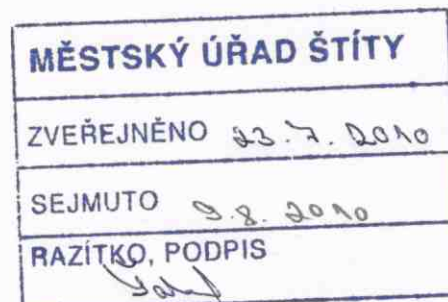 MĚSTSKÝ ÚŘAD ŠTÍTY
ZVEŘEJNĚNO 23.7.2010
SEJMUTO 9.8.2010
RAZÍTKO, PODPIS